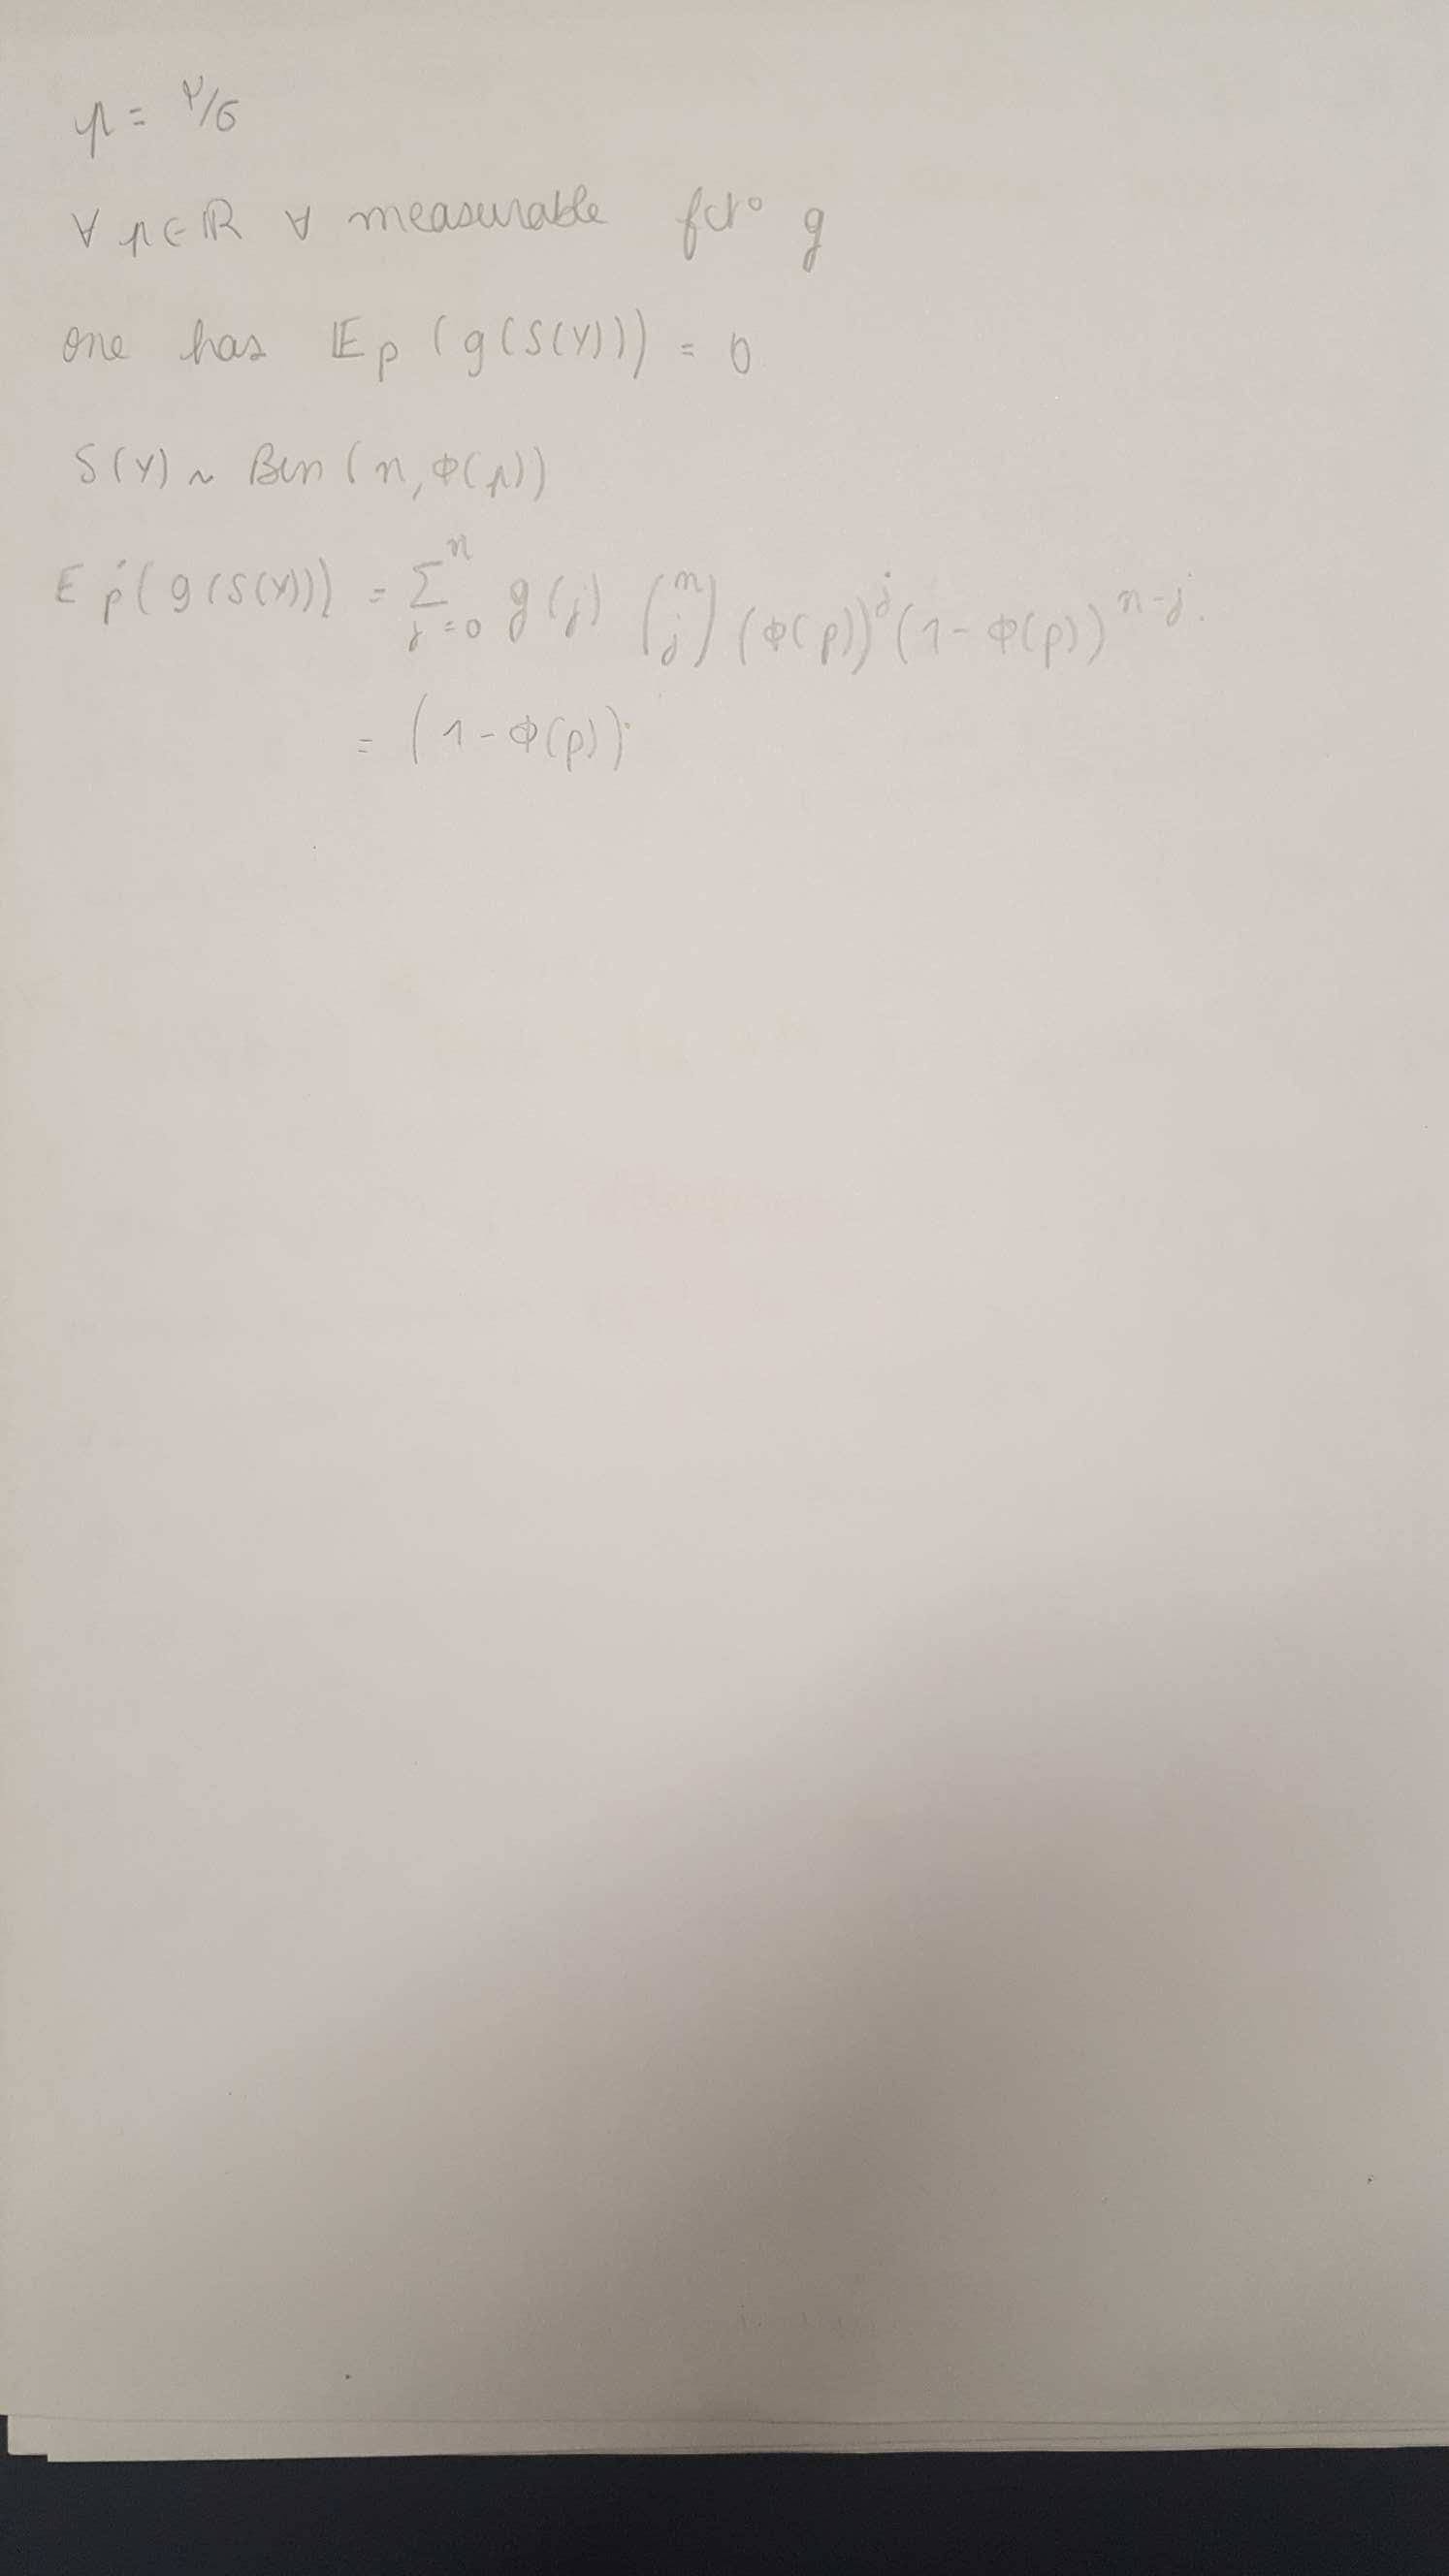 p = μ/σ
∀ p ∈ ℝ ∀ measurable fct° g
one has 𝔼p (g(S(Y))) = 0
S(Y) ~ Bin (n, Φ(p))
Ep (g(S(Y))) = Σ_{j=0}^{n} g(j) (n j) (Φ(p))^j (1 - Φ(p))^{n-j}.
= (1 - Φ(p))